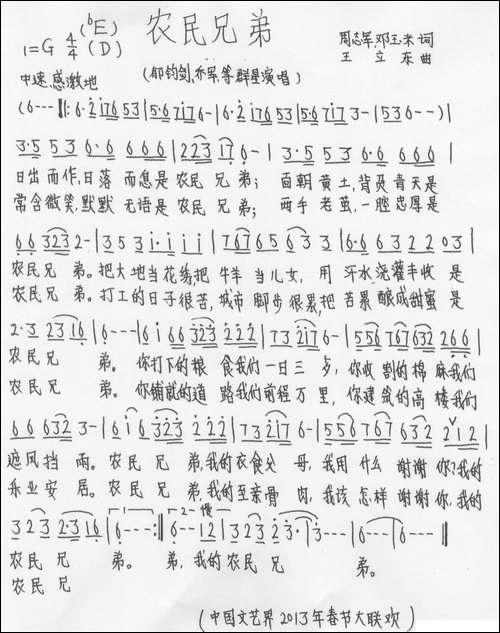 农民兄弟
(♭E)
1=G 4/4 (D)
周志军、邓玉来 词
王立东 曲
中速、感激地
(郁钧剑、乔军等群星演唱)
(6--- ‖: 6·2 i765 53 | 5·6 7i7 6- | 6·2 i765 53 | 5·6 7i7 3- | 5 3 6--) |
3·5 5 3 6·6 6 6 6 | 2 23 i7 6- | 3·5 5 3 6·6 6 6 6 |
日出而作,日落 而息是 农民 兄 弟; 面朝 黄土,背负 青天是
常含微笑,默默 无语是 农民 兄 弟; 两手 老茧,一腔 忠厚是
6 6 323 2- | 3 5 3 i·i i i | 7 67 6 5 6 3 3 | 6·6 6 3 2 2 0 3 |
农民 兄 弟。把大地当花绣,把 牛羊 当儿女, 用 汗水浇灌丰收 是
农民 兄 弟。打工的日子很苦,城市 脚步 很累,把 苦累 酿成甜蜜 是
2·3 2316 | 6--- | 6 i 6 6 323 2 2 2 | 7 3 2i7 6- | 5 56 767 632 2 6 6 |
农民 兄 弟。 你打下的粮 食我们 一日三 歺, 你收 割的棉 麻我们
农民 兄 弟。 你铺就的道 路我们 前程万 里, 你建 筑的高 楼我们
6 6 632 3- | 6 i 6 323 2 2 2 | 7 3 2i7 6- | 5 56 767 632 2 i 2 |
遮风挡 雨。农民 兄 弟,我的 衣食父 母,我用 什么 谢谢 你?我的
乐业安 居。农民 兄 弟,我的 至亲骨 肉,我该 怎样 谢谢 你,我的
3 23 2·3 16 | 6--- :‖ 6-- 12 | 3 23 2 3· | 3--- | 6--- | 6--- ‖
农民 兄 弟。 弟,我的 农民 兄 弟。
农民 兄
(中国文艺界2013年春节大联欢)